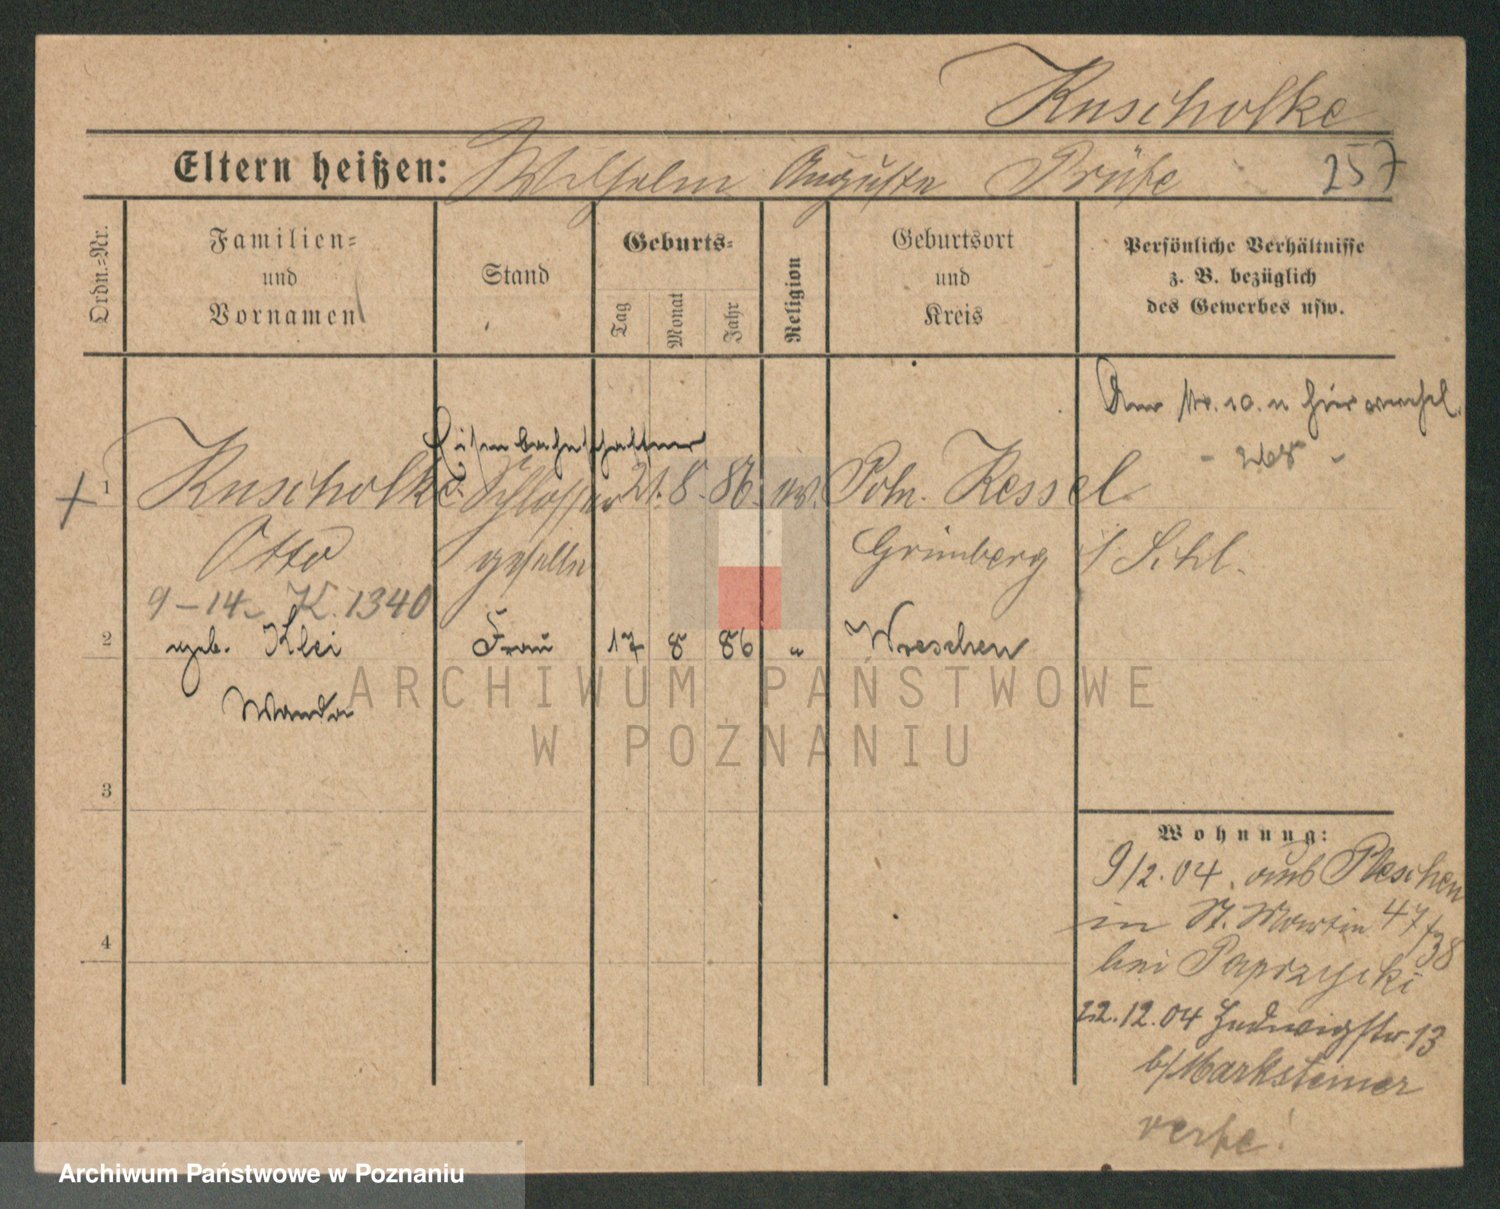 Kuscholke
Eltern heißen: Wilhelm Auguste Prüfe 257
Ordn.-Nr.
Familien-
und
Vornamen
Stand
Geburts-
Tag
Monat
Jahr
Religion
Geburtsort
und
Kreis
Persönliche Verhältnisse
z. B. bezüglich
des Gewerbes usw.
Eisenbahnschaffner
1 Kuscholke Schlosser 21. 8. 86. ev. Poln. Kessel
Otto geselle Grünberg i/Schl.
9-14 K. 1340
2 geb. Klei Frau 17 8 86 " Wreschen
Wanda
3
4
Wohnung:
9/2.04. aus Pleschen
in St. Martin 47/38
bei Paprzycki
22.12.04 Hedwigstr. 13
b/Marksteiner
ARCHIWUM PAŃSTWOWE
W POZNANIU
Archiwum Państwowe w Poznaniu